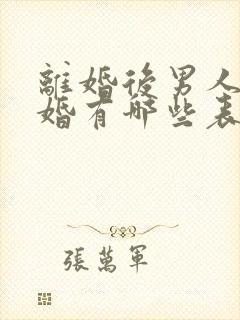 離婚後男人
婚有哪些表
張萬軍